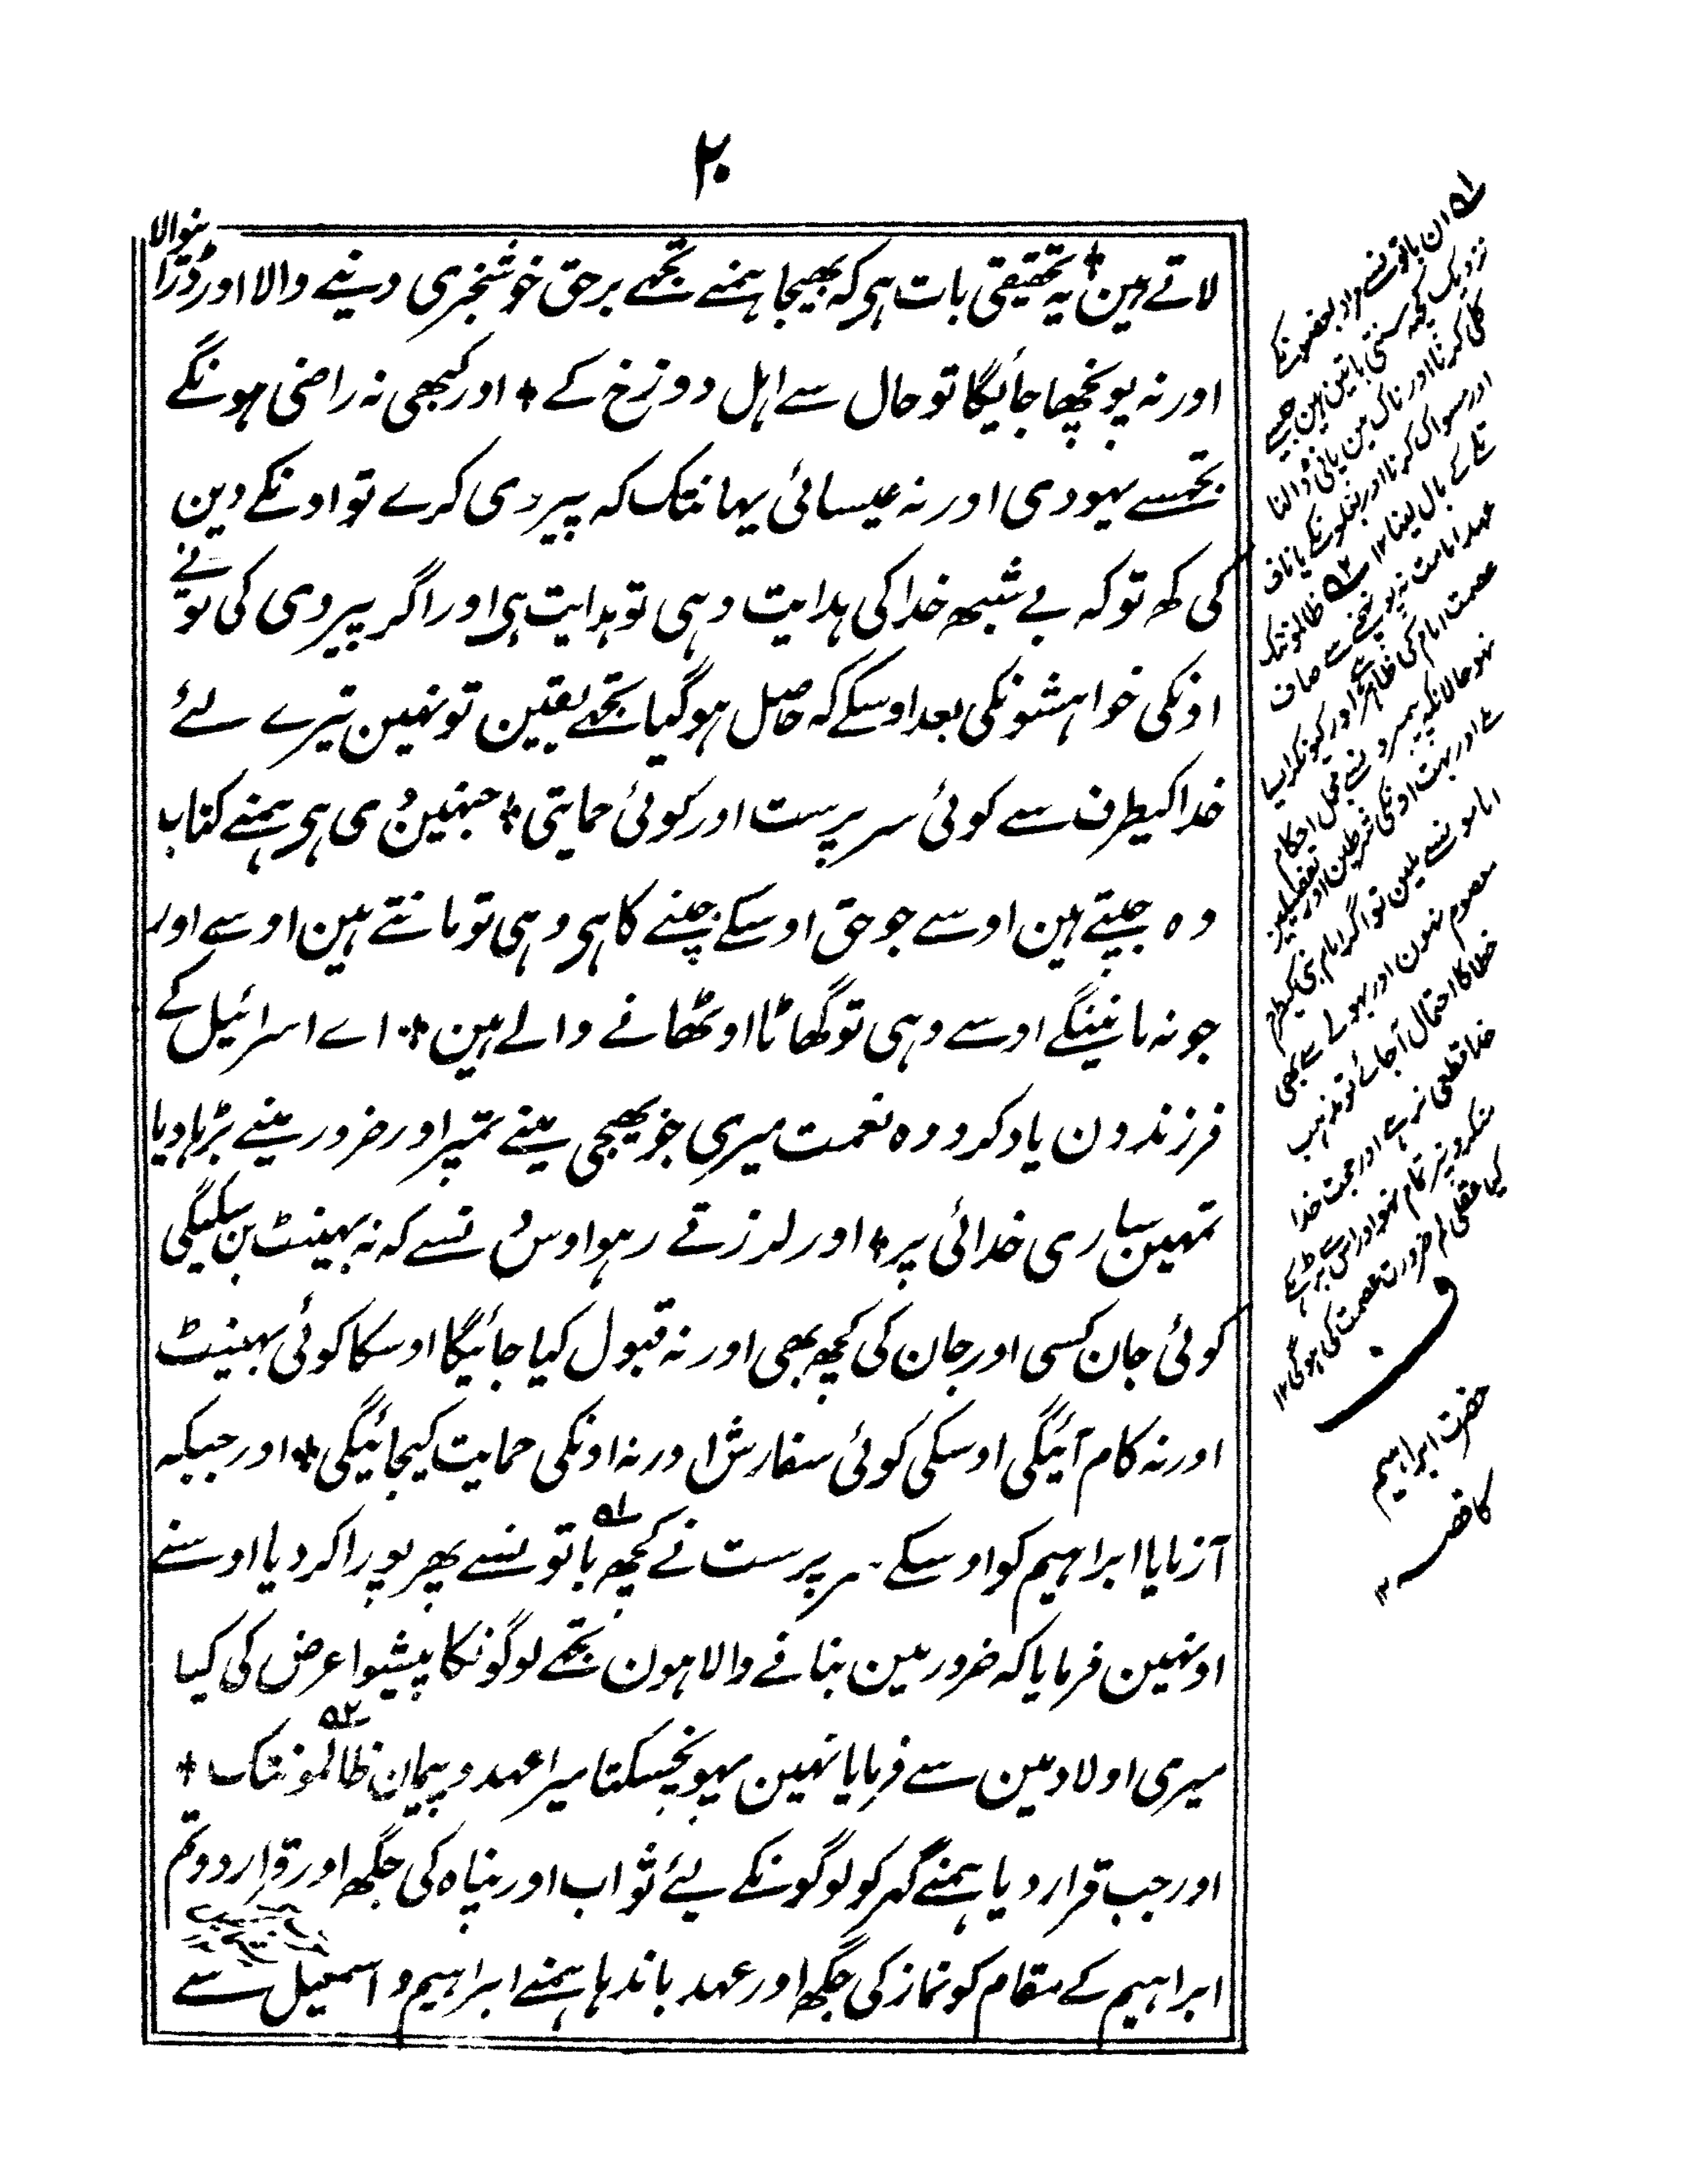 ۲۰
لاتے ہین ٭ یہ تحقیقی بات ہی کہ بھیجا ہمنے تجھے برحق خوشخبری دینے والا اور ڈرانیوالا
اور نہ پونچھا جائیگا تو حال سے اہل دوزخ کے ٭ اور کبھی نہ راضی ہونگے
تجھسے یہودی اور نہ عیسائی یہانتک کہ پیروی کرے تو اونکے دین
کی کھ تو کہ بے شبھہ خدا کی ہدایت وہی تو ہدایت ہی اور اگر پیروی کی تونے
اونکی خواہشونکی بعد اوسکے کہ حاصل ہوگیا تجھے یقین تو نہین تیرے لئے
خدا کیطرف سے کوئی سرپرست اور کوئی حمایتی ٭ جنہین دی ہی ہمنے کتاب
وہ جپتے ہین اوسے جو حق اوسکے جپنے کا ہی وہی تو مانتے ہین اوسے اور
جو نہ مانینگے اوسے وہی تو گھاٹا اوٹھانے والے ہین ٭ اے اسرائیل کے
فرزندون یاد کرو وہ نعمت میری جو بھیجی مینے تمپر اور ضرور مینے بڑہا دیا
تمہین ساری خدائی پر ٭ اور لرزتے رہو اوس دنسے کہ نہ بہینٹ بن سکیگی
کوئی جان کسی اور جان کی کچھ بھی اور نہ قبول کیا جائیگا اوسکا کوئی بہینٹ
اور نہ کام آئیگی اوسکی کوئی سفارش اور نہ اونکی حمایت کیجائیگی ٭ اور جبکہ
آزمایا ابراہیم کو اوسکے سرپرست نے کچھ باتونسے ۱ پھر پورا کردیا اوسنے
اونہین فرمایا کہ ضرور مین بنانے والا ہون تجھے لوگونکا پیشوا عرض کی کیا
میری اولاد مین سے فرمایا نہین پہونچسکتا میرا عہد و پیمان ظالمونتک ۲ ٭
اور جب قرار دیا ہمنے گہر کو لوگونکے لئے ثواب اور پناہ کی جگھ اور قرار دو تم
ابراہیم کے مقام کو نماز کی جگھ اور عہد باندہا ہمنے ابراہیم و اسمعیل سے
۱ ان باتونسے مراد بعضونکے
نزدیک کچھ سنتی باتین ہین جیسے
کلی کرنا اور ناک مین پانی ڈالنا
اور مسواک کرنا اور بغلونکے یا ناف
تلے کے بال لینا ۱۲ ۲ ظالمونتک
عہد امامت نہ پہونچنے سے صاف
عصمت امام کی ظاہر ہے اور کیونکر ایسا
نہو حالانکہ
معصوم نہون اور بہولے سے بھی
خطا کا احتمال آجائے تو مذہب
خدا قطعی نرہے اور حجت خدا
منکرونپر تمام نہو اور اس سے بڑے
کیا عقلی ضرورت عصمت کی ہوگی ۱۲
ف
حضرت ابراہیم
کا قصہ ۱۲